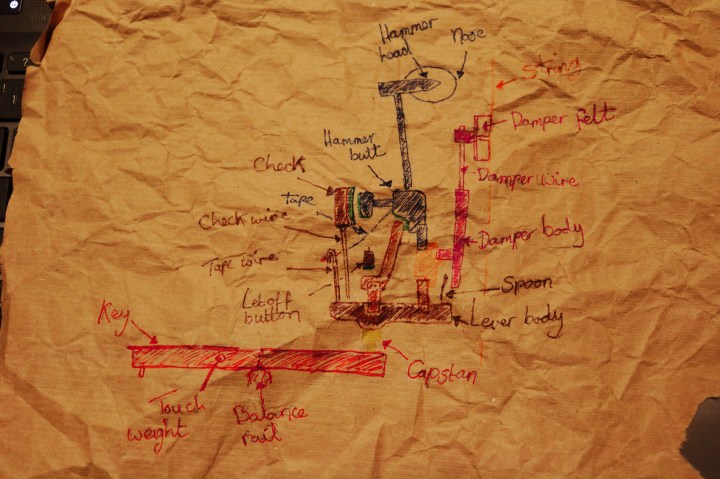 Hammer
head
Nose
String
Damper felt
Hammer
butt
Check
Tape
Damper wire
Check wire
Tape wire
Damper body
Let off
button
Spoon
Lever body
Key
Capstan
Touch
weight
Balance
rail